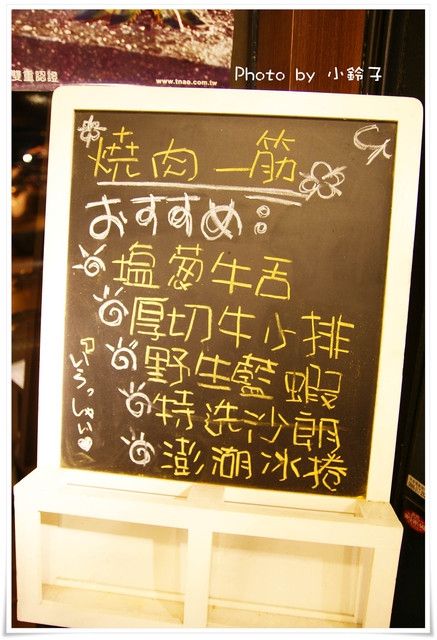 雙重認證
www.tnao.com.tw
Photo by 小鈴子
燒肉一筋
おすすめ:
塩葱牛舌
厚切牛小排
野生藍蝦
特选沙朗
澎湖冰捲
いらっしゃい